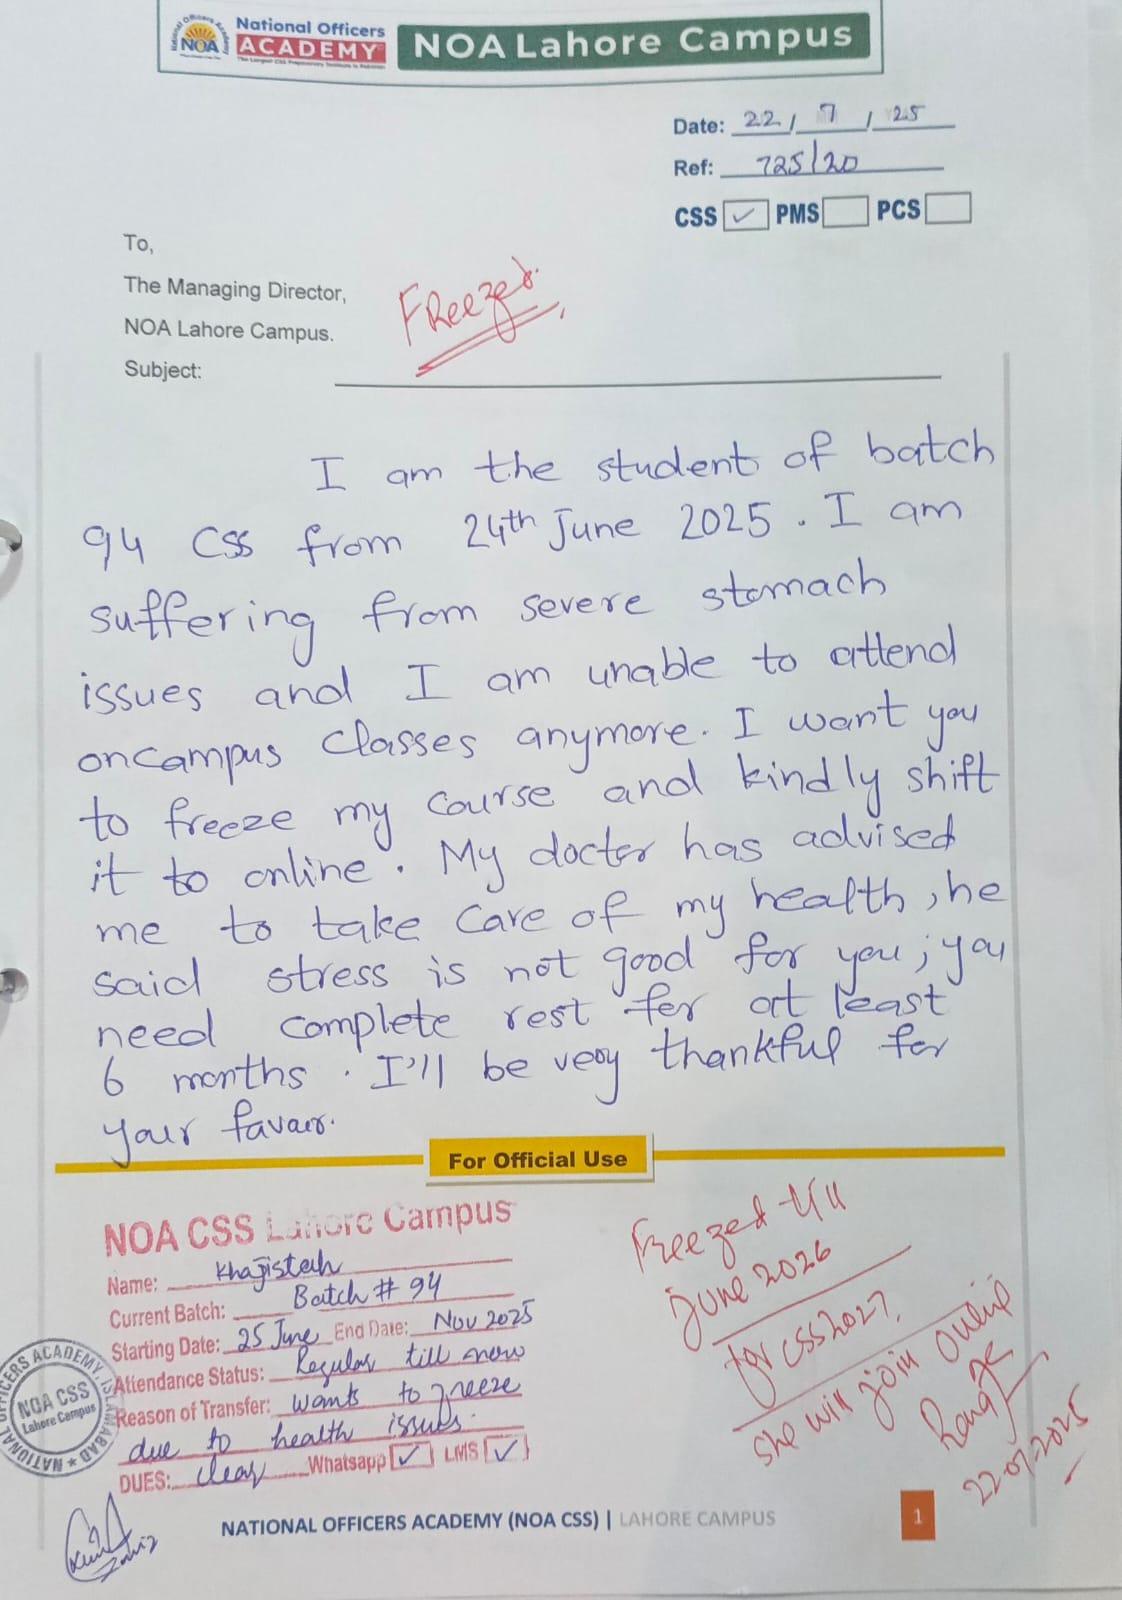 National Officers
ACADEMY
NOA
NOA Lahore Campus
Date: 22 / 7 / 25
Ref: 725/20
CSS ✓ PMS PCS
To,
The Managing Director,
NOA Lahore Campus.
Subject:
Freezed.
I am the student of batch
94 CSS from 24th June 2025. I am
suffering from severe stomach
issues and I am unable to attend
oncampus classes anymore. I want you
to freeze my course and kindly shift
it to online. My doctor has advised
me to take care of my health, he
said stress is not good for you; you
need complete rest for at least
6 months. I'll be very thankful for
your favour.
For Official Use
NOA CSS Lahore Campus
Name: Khajistah
Current Batch: Batch # 94
Starting Date: 25 June End Date: Nov 2025
Attendance Status: Regular till now
Reason of Transfer: wants to freeze
due to health issues.
DUES: clear Whatsapp ✓ LMS ✓
Freezed till
June 2026
for CSS 2027.
she will join online
22-07-2025
NOA CSS
Lahore Campus
NATIONAL OFFICERS ACADEMY (NOA CSS) | LAHORE CAMPUS
1